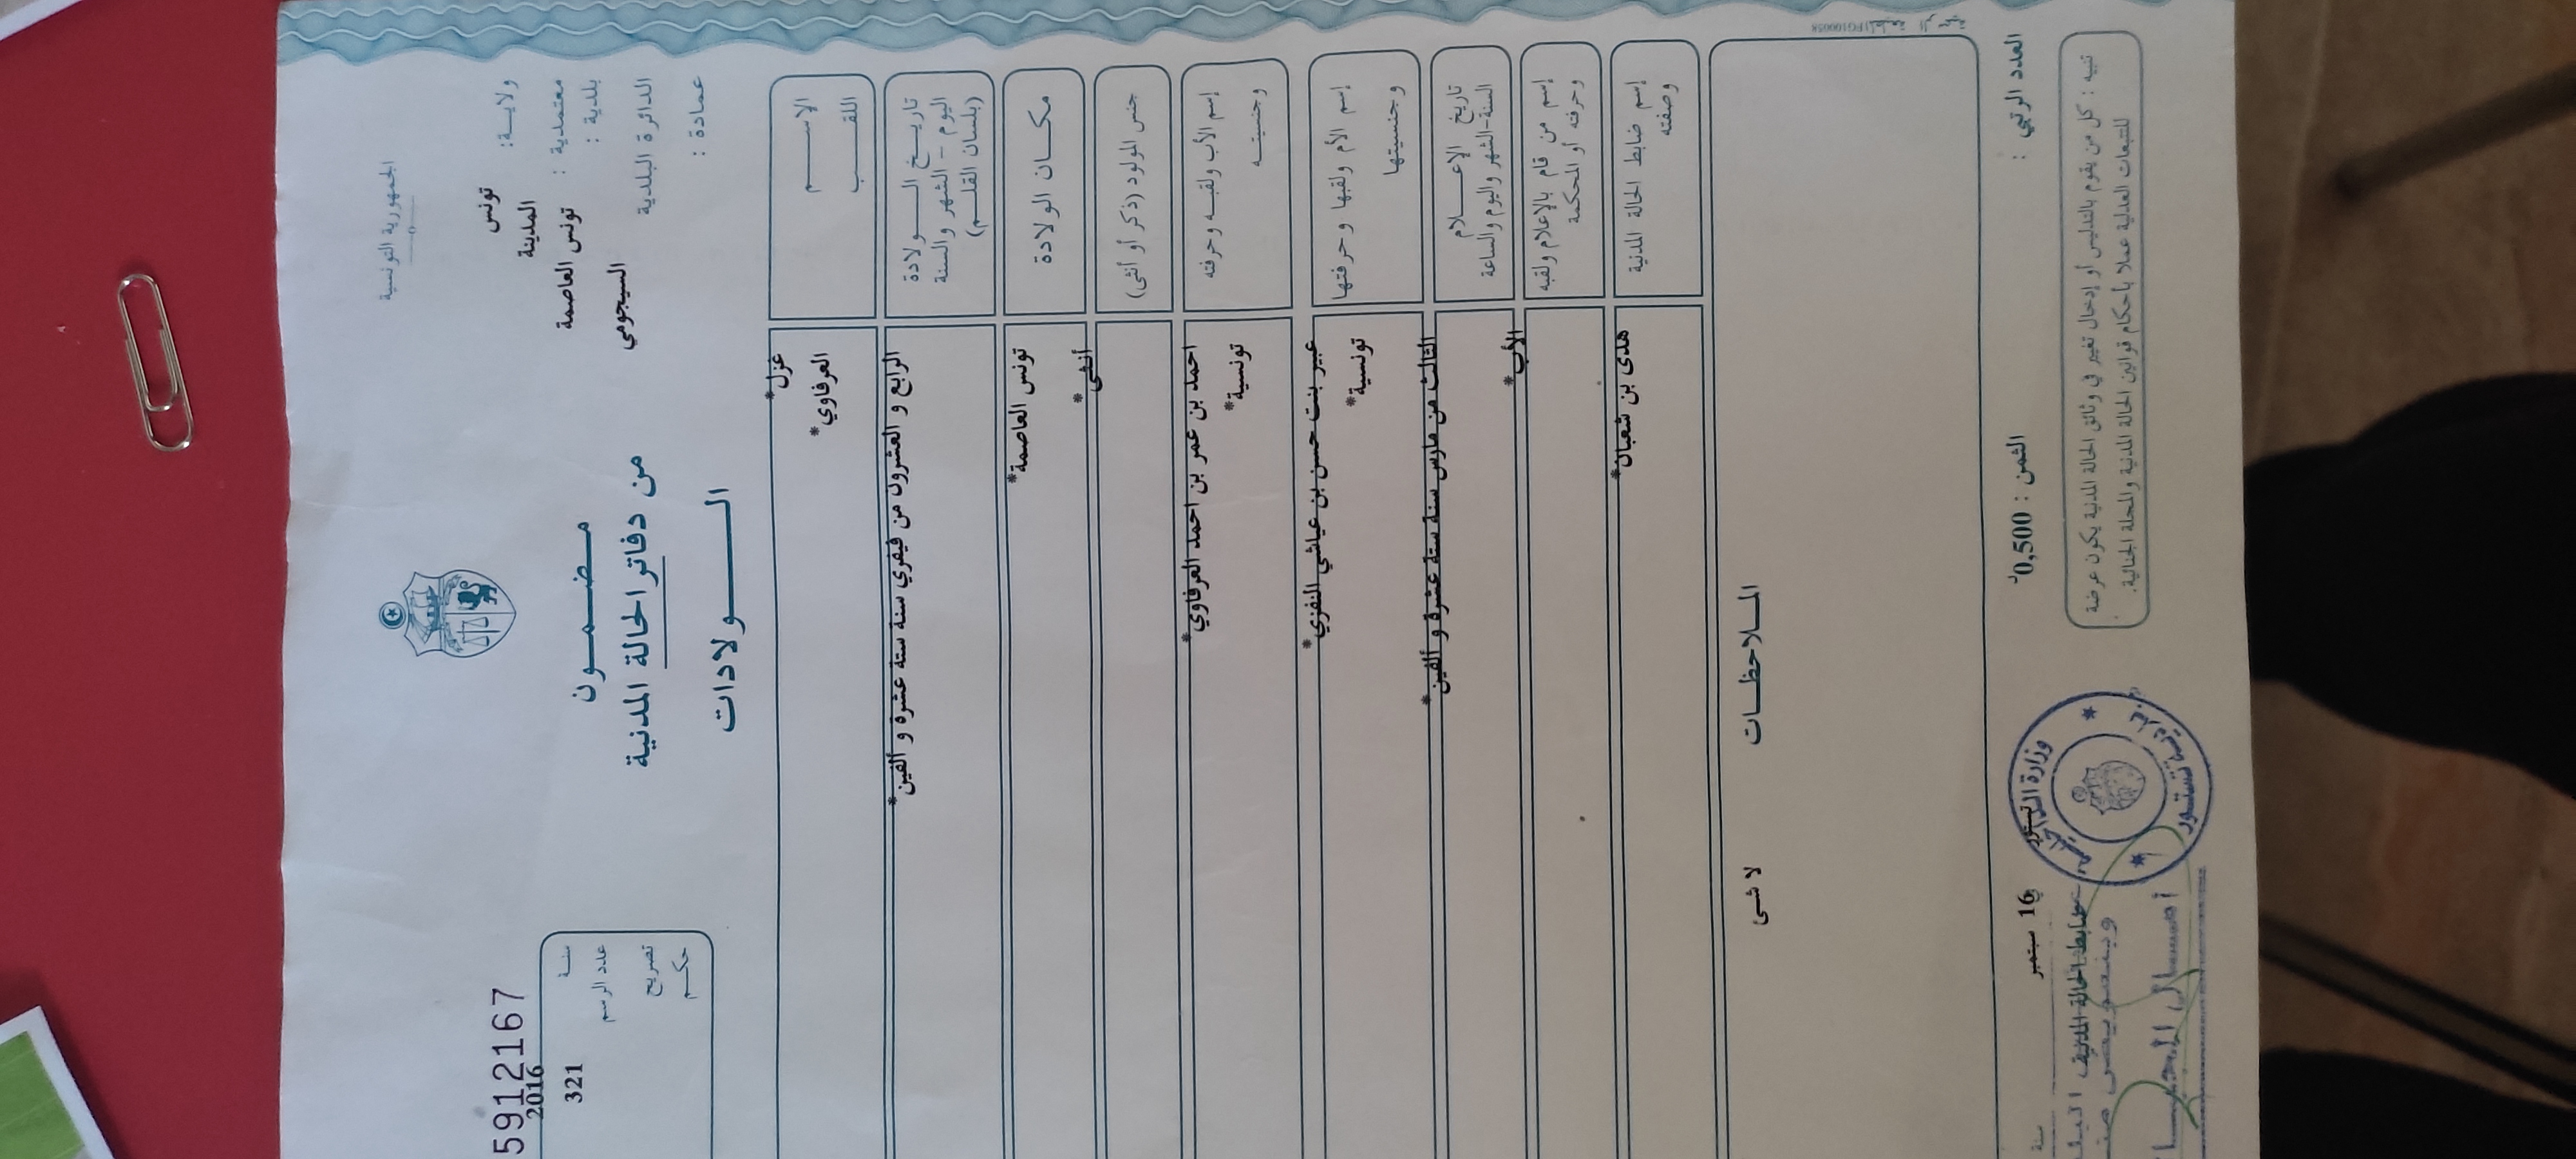 الجمهورية التونسية
ولايــة: تونس
معتمدية : المدينة
بلدية : تونس العاصمة
الدائرة البلدية السيجومي
عمادة :
5912167
سنــة 2016
عدد الرسم 321
تصريح
حكــم
مـضـمــون
من دفاتر الحالة المدنية
الــولادات
الإســـم غزل*
اللقــب العرفاوي*
تاريــخ الــولادة
اليوم - الشهر والسنة
(بلسان القلــم)
الرابع و العشرون من فيفري سنة ستة عشرة و ألفين*
مكــان الولادة تونس العاصمة*
جنس المولود (ذكر أو أنثى) أنثى*
إسم الأب ولقبــه وحرفته احمد بن عمر بن احمد العرفاوي*
وجنسيتــه تونسية*
إسم الأم ولقبها وحرفتها عبير بنت حسن بن عياشي النفزي*
وجنسيتهــا تونسية*
تاريخ الإعــلام
السنة-الشهر واليوم والساعة
الثالث من مارس سنة ستة عشرة و ألفين*
إسم من قام بالإعلام ولقبه
وحرفته أو المحكمة
الأب*
إسم ضابط الحالة المدنية
وصفته
هدى بن شعبان*
المــلاحظــات
لا شئ
العدد الرتبي :
الثمن : 0,500د
16 سبتمبر
سنة
تنبيه : كل من يقوم بالتدليس أو إدخال تغيير في وثائق الحالة المدنية يكون عرضة
للتتبعات العدلية عملا بأحكام قوانين الحالة المدنية والمجلة الجنائية.
وزارة الداخلية
تستور
ضابط الحالة المدنية
وبتفويض منه